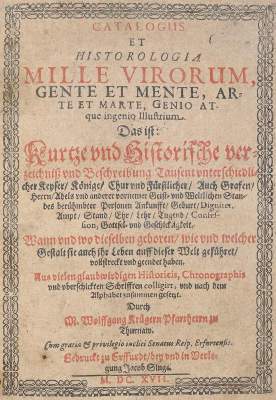 CATALOGUS
ET
HISTOROLOGIA
MILLE VIRORUM,
GENTE ET MENTE, AR-
TE ET MARTE, GENIO AT-
que ingenio Illustrium.
Das ist:
Kurtze vnd Historische ver-
zeichniß vnd Beschreibung Tausent vnterschiedli-
cher Keyser / Könige / Chur vnd Fürstlicher / Auch Grafen /
Herrn / Adels vnd anderer vornemer Geist- vnd Weltlichen Stan-
des berühmbter Personen Ankunfft / Geburt / Digniter,
Ampt / Stand / Ehr / Lehr / Tugend / Confes-
sion, Gottsel- vnd Geschickligkeit.
Wann vnd wo dieselben geboren / wie vnd welcher
Gestalt sie auch ihr Leben auff dieser Welt geführet /
vollstreckt vnd geendet haben.
Aus vielen glaubwirdigen Historicis, Chronographis
vnd vberschickten Schrifften colligirt, vnd nach dem
Alphabet zusammen gesetzt.
Durch
M. Wolffgang Krügern Pfarrherrn zu
Cum gratia & privilegio inclyti Senatus Reip. Erfurtensis.
Gedruckt zu Erffurdt / bey vnd in Verle-
gung Jacob Singe.
M. DC. XVII.